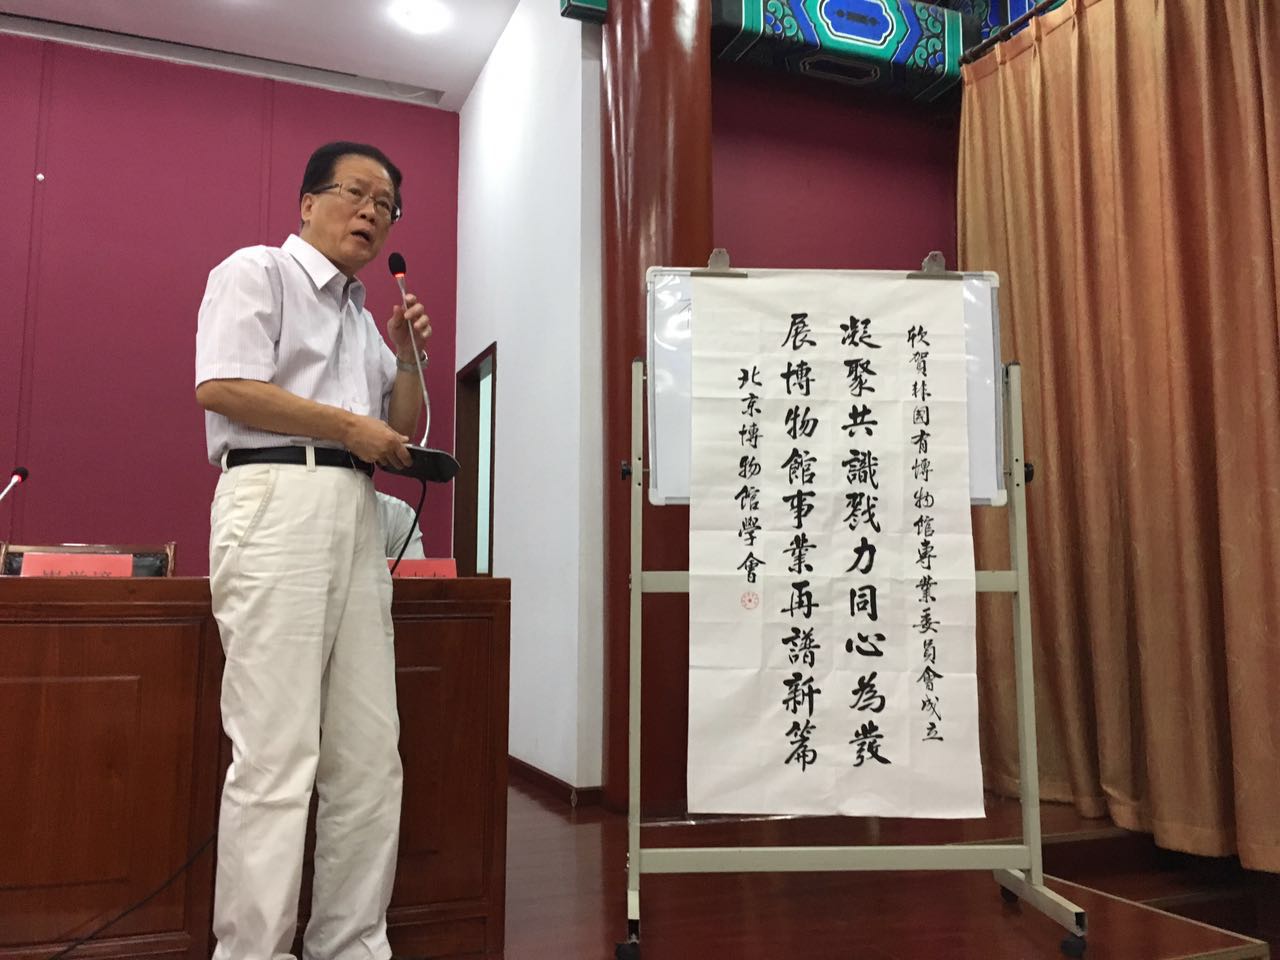 欣賀非國有博物館專業委員會成立
凝聚共識戮力同心為發
展博物館事業再譜新篇
北京博物館學會